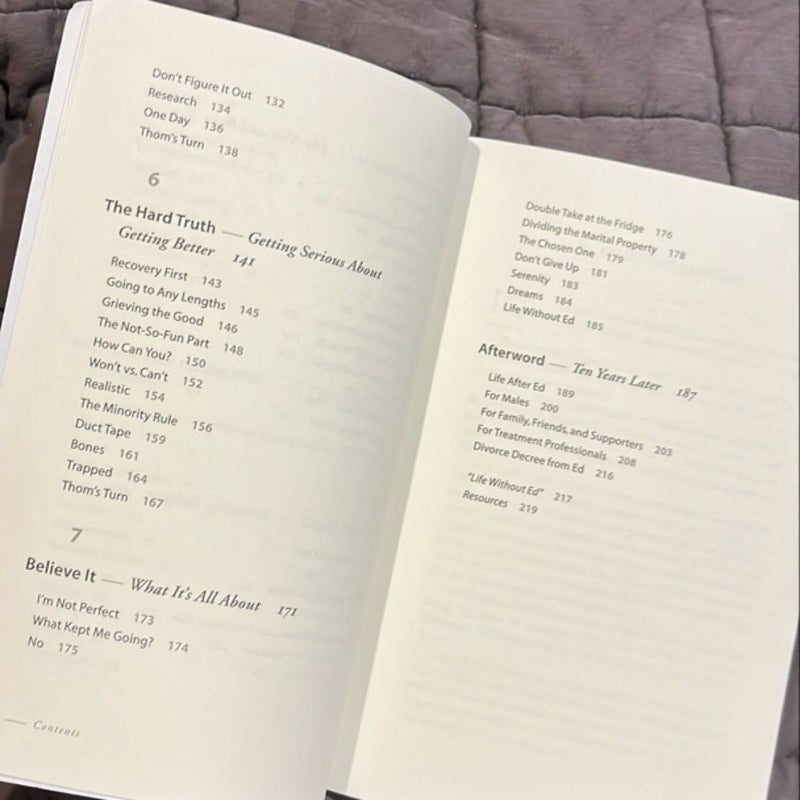 Don't Figure It Out 132
Research 134
One Day 136
Thom's Turn 138
6
The Hard Truth — Getting Serious About
Getting Better 141
Recovery First 143
Going to Any Lengths 145
Grieving the Good 146
The Not-So-Fun Part 148
How Can You? 150
Won't vs. Can't 152
Realistic 154
The Minority Rule 156
Duct Tape 159
Bones 161
Trapped 164
Thom's Turn 167
7
Believe It — What It's All About 171
I'm Not Perfect 173
What Kept Me Going? 174
No 175
— Contents
Double Take at the Fridge 176
Dividing the Marital Property 178
The Chosen One 179
Don't Give Up 181
Serenity 183
Dreams 184
Life Without Ed 185
Afterword — Ten Years Later 187
Life After Ed 189
For Males 200
For Family, Friends, and Supporters 203
For Treatment Professionals 208
Divorce Decree from Ed 216
"Life Without Ed" 217
Resources 219